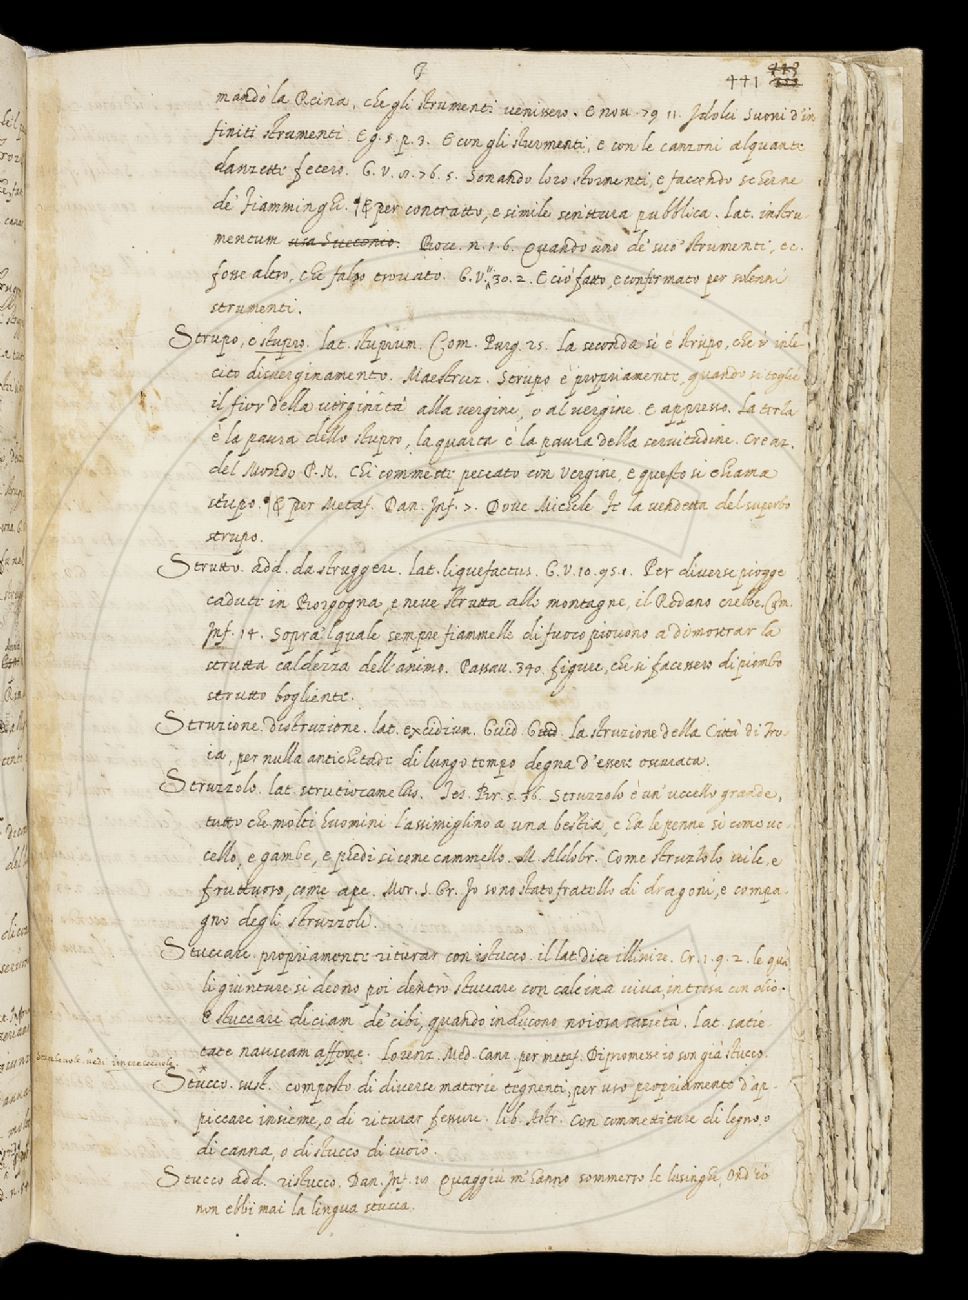 441
mandò la Reina, che gli strumenti venissero. E nov. 79 11. I dolci suoni d'in
finiti strumenti. E g. 5. p. 3. E con gli sturmenti, e con le canzoni alquante
danzette fecero. G. V. 8. 76. 5. Sonando loro stormenti, e faccendo scherne
de' Fiamminghi. ¶ E per contratto, e simile scrittura pubblica. lat. instru
mentum usa Suetonio. Bocc. n. 1. 6. Quando uno de' suo' strumenti, ec.
fosse altro, che falso trovato. G. V. 11. 30. 2. E ciò fatto, e confirmato per solenni
strumenti.
Strupo, e stupro. lat. stuprum. Com. Purg. 25. la seconda si è strupo, che è inle
cito disverginamento. Maestruz. Strupo è propriamente, quando si toglie
il fior della verginità alla vergine, o al vergine. E appresso. La terza
è la paura dello stupro, la quarta è la paura della servitudine. Creaz.
del Mondo P. N. Chi commette peccato con Vergine, e questo si chiama
stupo. ¶ E per Metaf. Dan. Inf. 7. Dove Michele Fe la vendetta del superbo
strupo.
Strutto. add. da struggere. lat. liquefactus. G. V. 10. 95. 1. Per diverse piogge
cadute in Borgogna, e neve strutta alle montagne, il Rodano crebbe. Com.
Inf. 14. Sopra 'l quale sempre fiammelle di fuoco piovono a dimostrar la
strutta caldezza dell'animo. Passav. 340. figure, che si facessero di piombo
strutto bogliente.
Struzione. distruzione. lat. excidium. Guid. Guid. la struzione della Città di Tro-
ia, per nulla antichitade di lungo tempo degna d'essere osumata.
Struzzolo. lat. strutiocamelus. Tes. Br. 5. 36. Struzzolo è un' uccello grande,
tutto che molti huomini l'assimiglino a una bestia, e ha le penne sì come uc-
cello, e gambe, e piedi sì come cammello. M. Aldobr. Come struzzolo vile, e
fruttuoso, come ape. Mor. S. Gr. Io sono stato fratello di dragoni, e compa-
gno degli struzzoli.
Stuccare. propriamente riturar con istucco. il lat. dice illinire. Cr. 1. 9. 2. le qua
li giunture si deono poi dentro stuccare con calcina viva, intrisa con olio.
E stuccare diciam de' cibi, quando inducono noiosa sazietà. lat. satie
tate nauseam afferre. Lorenz. Med. Canz. per metaf. Di promesse io son già stucco.
Stucco. sust. composto di diverse materie tegnenti, per uso propriamente d'ap-
piccare insieme, o di riturar fessure. lib. Astr. Con commettiture di legno, o
di canna, o di stucco di cuoio.
Stucco add. ristucco. Dan. Inf. 18. Quaggiù m' hanno sommerso le lusinghe, Ond' io
non ebbi mai la lingua stucca.